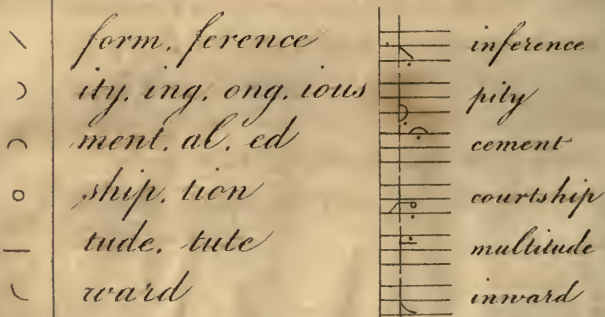 form. ference inference
ity. ing. ong. ious pity
ment. al. ed cement
ship. tion courtship
tude. tute multitude
ward inward